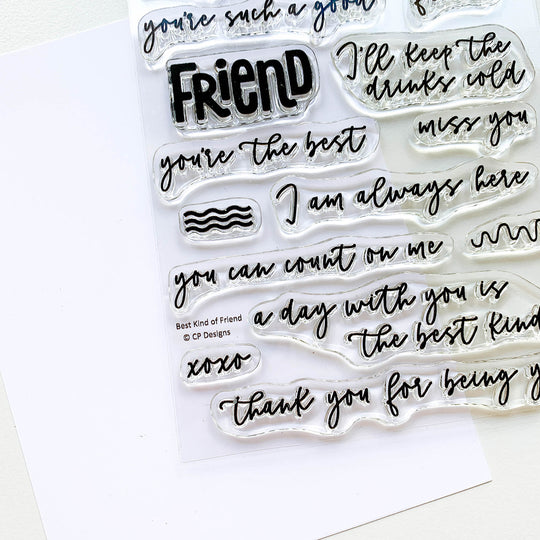 you're such a good
FRIEND
I'll keep the
drinks cold
miss you
you're the best
I am always here
you can count on me
a day with you is
the best kind
Best Kind of Friend
© CP Designs
xoxo
thank you for being